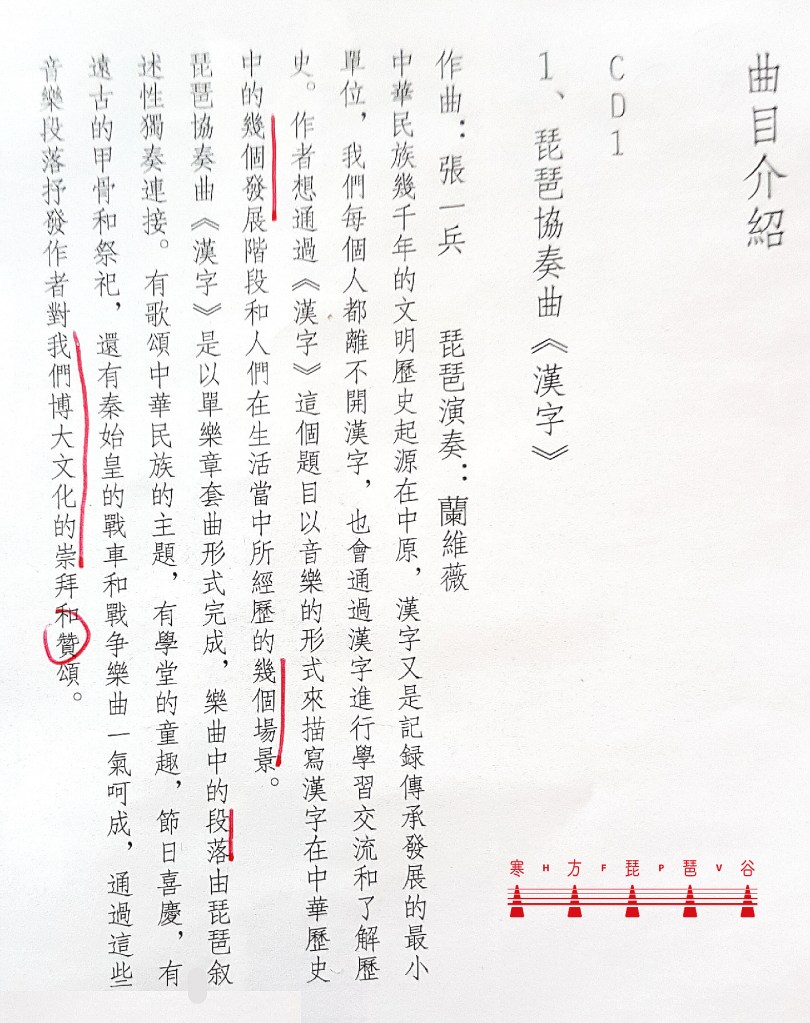 曲目介紹
CD1
1、琵琶協奏曲《漢字》
作曲：張一兵　　琵琶演奏：蘭維薇
中華民族幾千年的文明歷史起源在中原，漢字又是記録傳承發展的最小
單位，我們每個人都離不開漢字，也會通過漢字進行學習交流和了解歷
史。作者想通過《漢字》這個題目以音樂的形式來描寫漢字在中華歷史
中的幾個發展階段和人們在生活當中所經歷的幾個場景。
琵琶協奏曲《漢字》是以單樂章套曲形式完成，樂曲中的段落由琵琶叙
述性獨奏連接。有歌頌中華民族的主題，有學堂的童趣，節日喜慶，有
遠古的甲骨和祭祀，還有秦始皇的戰車和戰争樂曲一氣呵成，通過這些
音樂段落抒發作者對我們博大文化的崇拜和贊頌。
寒 H 方 F 琵 P 琶 V 谷